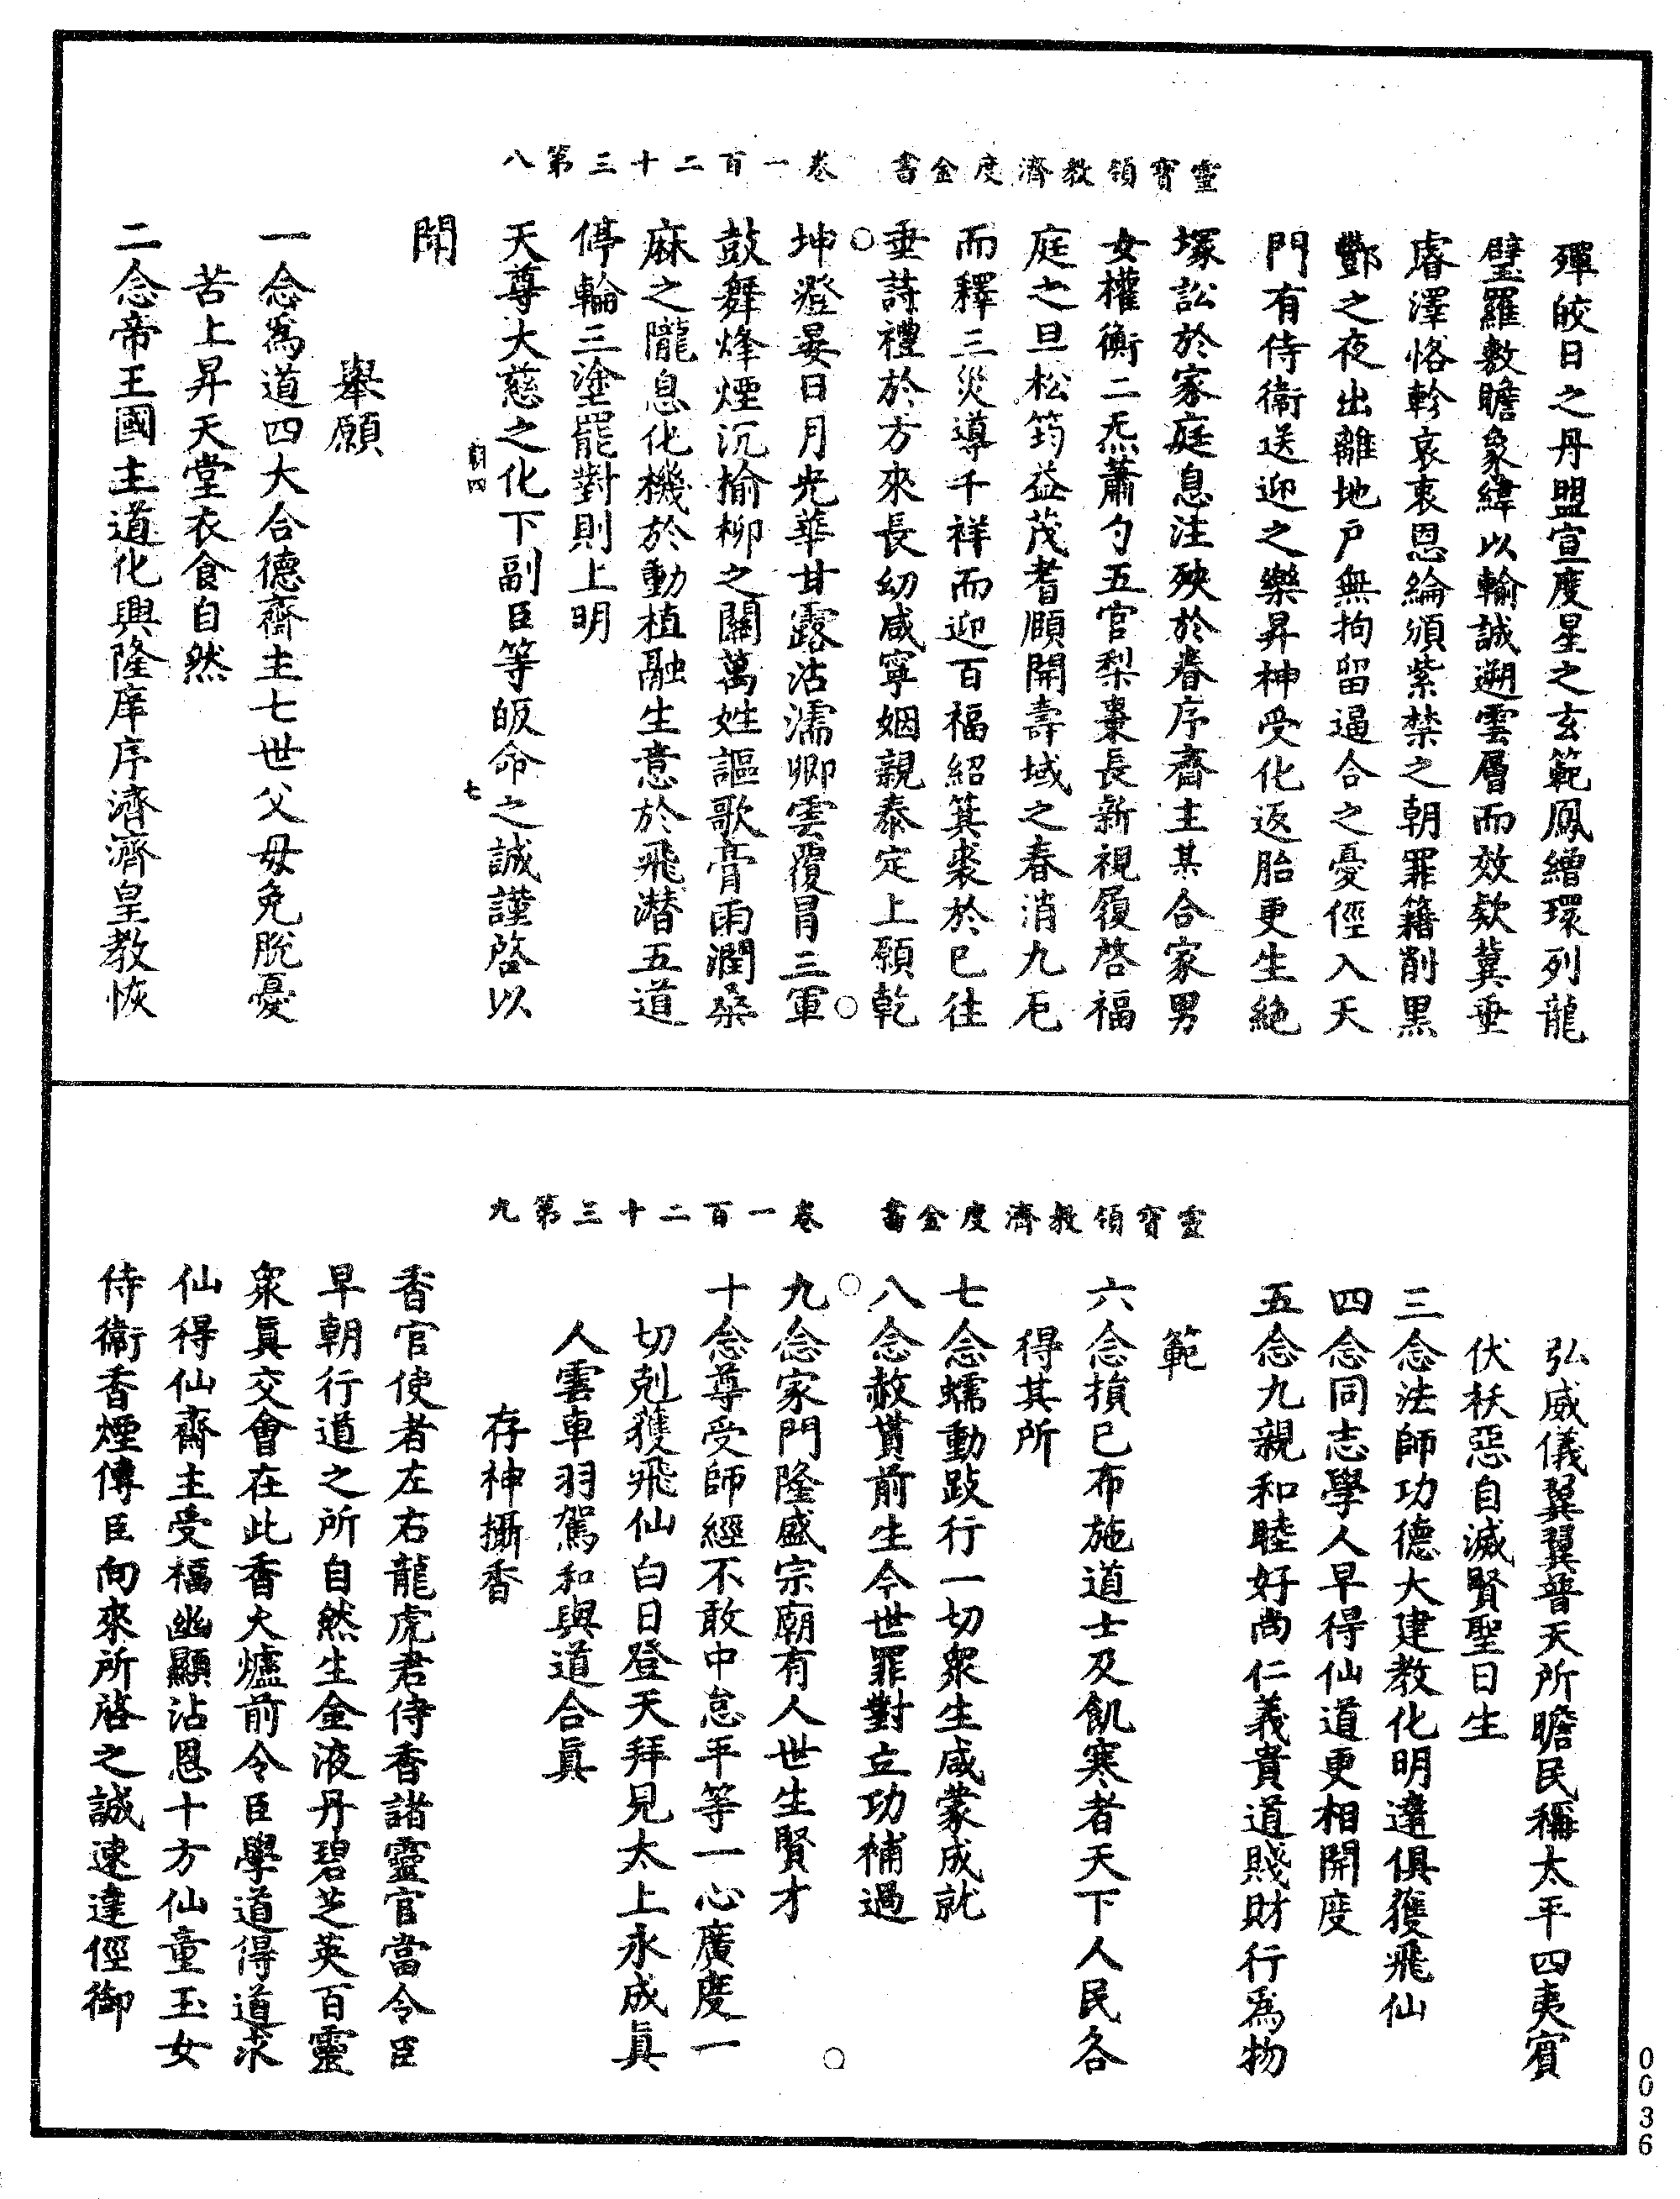 靈寶領教濟度金書　卷一百二十三第八
殫皎日之丹盟宣度星之玄範鳳繒環列龍
璧羅敷瞻象緯以輸誠遡雲層而效欵冀垂
睿澤恪軫哀衷恩綸頒紫禁之朝罪籍削黑
酆之夜出離地戶無拘留逼合之憂徑入天
門有侍衛送迎之樂昇神受化返胎更生絶
塚訟於家庭息注殃於眷序齋主某合家男
女權衡二炁蕭勺五官梨棗長新視履啓福
庭之旦松筠益茂耆頤開壽域之春消九厄
而釋三災導千祥而迎百福紹箕裘於已往
垂詩禮於方來長幼咸寧姻親泰定上願乾
坤澄晏日月光華甘露沾濡卿雲覆冒三軍
鼓舞烽煙沉榆柳之關萬姓謳歌膏雨潤桑
麻之隴息化機於動植融生意於飛潛五道
停輪三塗罷對則上明
天尊大慈之化下副臣等皈命之誠謹啓以
七
聞
舉願
一念爲道四大合德齋主七世父母免脫憂
苦上昇天堂衣食自然
二念帝王國主道化興隆庠序濟濟皇教恢
靈寶領教濟度金書　卷一百二十三第九
弘威儀翼翼普天所瞻民稱太平四夷賓
伏袄惡自滅賢聖日生
三念法師功德大建教化明達俱獲飛仙
四念同志學人早得仙道更相開度
五念九親和睦好尚仁義貴道賤財行爲物
範
六念損己布施道士及飢寒者天下人民各
得其所
七念蠕動跂行一切衆生咸蒙成就
八念赦貰前生今世罪對立功補過
九念家門隆盛宗廟有人世生賢才
十念尊受師經不敢中怠平等一心廣度一
切剋獲飛仙白日登天拜見太上永成眞
人雲車羽駕和與道合眞
存神攝香
香官使者左右龍虎君侍香諸靈官當令臣
早朝行道之所自然生金液丹碧芝英百靈
衆眞交會在此香火爐前令臣學道得道求
仙得仙齋主受福幽顯沾恩十方仙童玉女
侍衛香煙傳臣向來所啓之誠速達徑御
0036